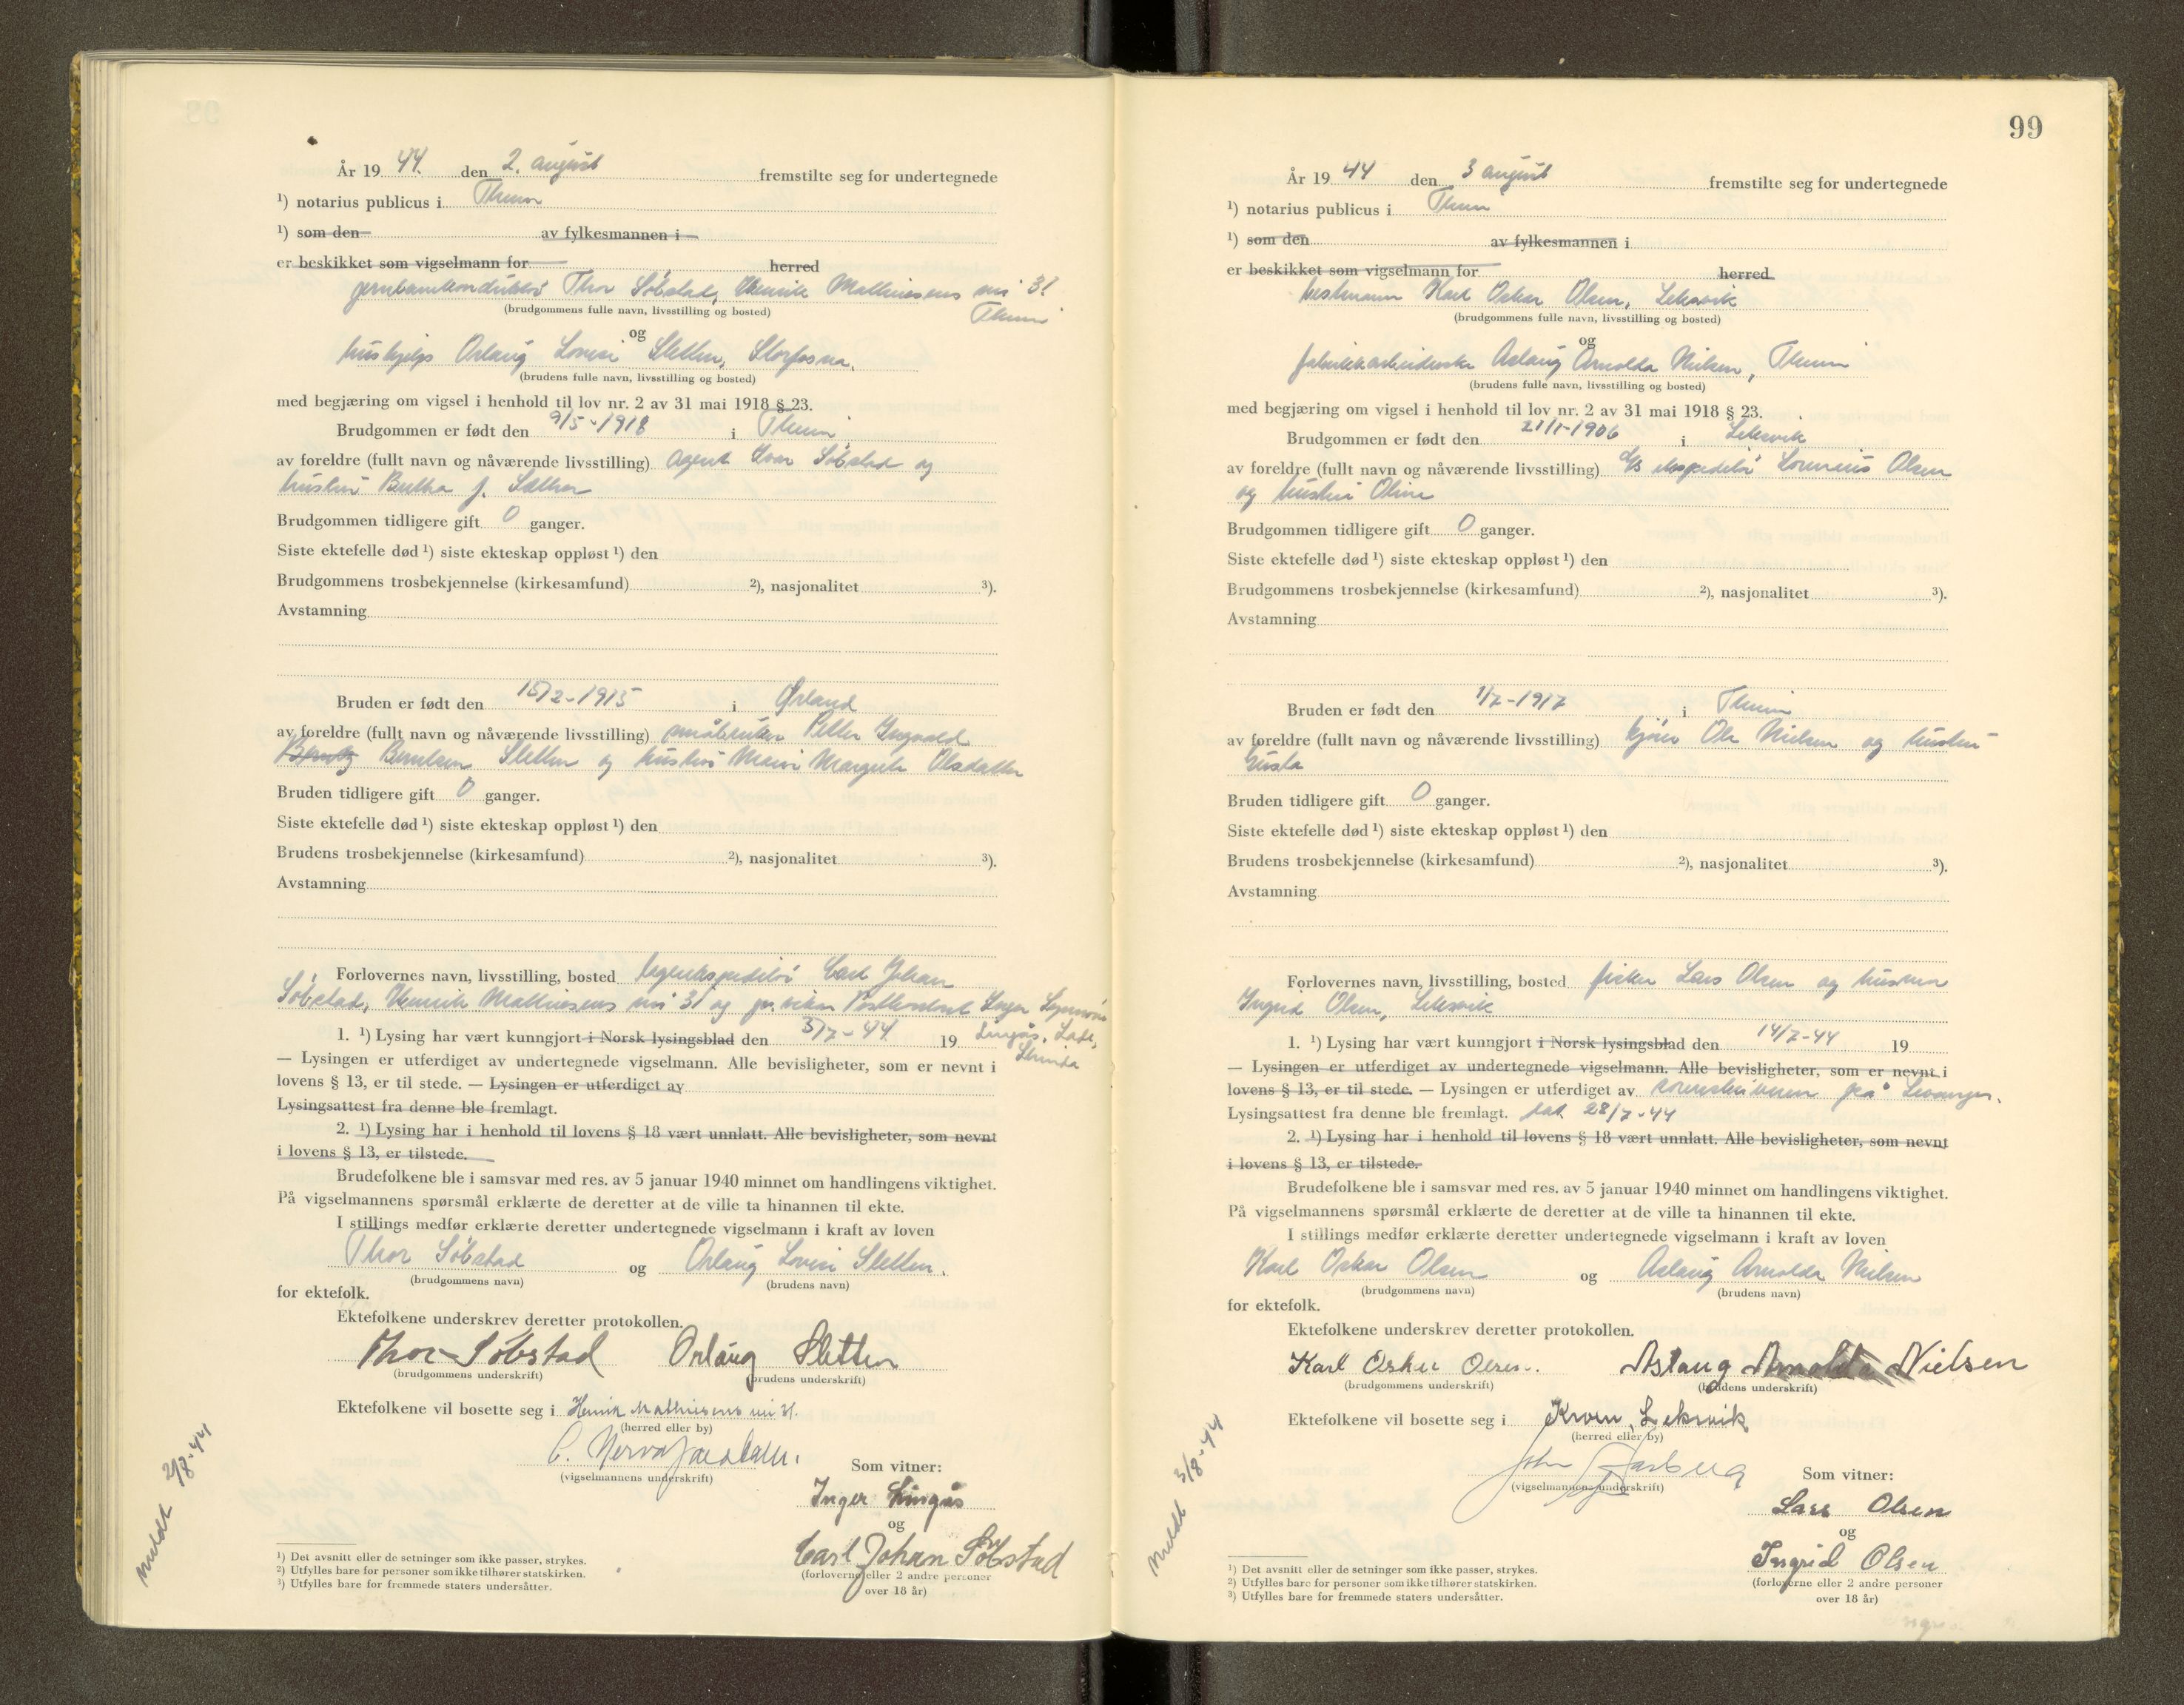 År 19 44. den 2. august fremstilte seg for undertegnede
¹) notarius publicus i
¹) som den av fylkesmannen i
er beskikket som vigselmann for herred
Thor Söbstad, Henrik Mathiesens vei 31
(brudgommens fulle navn, livsstilling og bosted)
og
hushjelp Orlaug Lovise Sletten, Storfosna.
(brudens fulle navn, livsstilling og bosted)
med begjæring om vigsel i henhold til lov nr. 2 av 31 mai 1918 § 23.
Brudgommen er født den 9/5-1918 i
av foreldre (fullt navn og nåværende livsstilling) agent Ivar Söbstad og
hustru Bertha f. Sæther
Brudgommen tidligere gift 0 ganger.
Siste ektefelle død ¹) siste ekteskap oppløst ¹) den
Brudgommens trosbekjennelse (kirkesamfund) ²), nasjonalitet ³).
Avstamning
Bruden er født den 15/2-1915 i Ørland
av foreldre (fullt navn og nåværende livsstilling) småbruker Petter Ingvald
Berntsen Sletten og hustru Olsdatter
Bruden tidligere gift 0 ganger.
Siste ektefelle død ¹) siste ekteskap oppløst ¹) den
Brudens trosbekjennelse (kirkesamfund) ²), nasjonalitet ³).
Avstamning
Forlovernes navn, livsstilling, bosted Carl Johan
Söbstad, Henrik Mathiesens vei 31 og Inger
1. ¹) Lysing har vært kunngjort i Norsk lysingsblad den 3/7-44 19 Lingås, Lade,
Strinda
— Lysingen er utferdiget av undertegnede vigselmann. Alle bevisligheter, som er nevnt i
lovens § 13, er til stede. — Lysingen er utferdiget av
Lysingsattest fra denne ble fremlagt.
2. ¹) Lysing har i henhold til lovens § 18 vært unnlatt. Alle bevisligheter, som nevnt
i lovens § 13, er tilstede.
Brudefolkene ble i samsvar med res. av 5 januar 1940 minnet om handlingens viktighet.
På vigselmannens spørsmål erklærte de deretter at de ville ta hinannen til ekte.
I stillings medfør erklærte deretter undertegnede vigselmann i kraft av loven
Thor Söbstad og Orlaug Lovise Sletten.
(brudgommens navn) (brudens navn)
for ektefolk.
Ektefolkene underskrev deretter protokollen.
Thor Söbstad Orlaug Sletten
(brudgommens underskrift) (brudens underskrift)
Ektefolkene vil bosette seg i Henrik Mathiesens vei 31.
(herred eller by)
(vigselmannens underskrift)
Som vitner:
Inger Lingås
og
Carl Johan Söbstad
(forloverne eller 2 andre personer
over 18 år)
meldt 2/8-44
¹) Det avsnitt eller de setninger som ikke passer, strykes.
²) Utfylles bare for personer som ikke tilhører statskirken.
³) Utfylles bare for fremmede staters undersåtter.
99
År 19 44 den 3 august fremstilte seg for undertegnede
¹) notarius publicus i
¹) som den av fylkesmannen i
er beskikket som vigselmann for herred
Karl Oskar Olsen, Leksvik
(brudgommens fulle navn, livsstilling og bosted)
og
fabrikkarbeiderske Aslaug Arnolda Nielsen,
(brudens fulle navn, livsstilling og bosted)
med begjæring om vigsel i henhold til lov nr. 2 av 31 mai 1918 § 23.
Brudgommen er født den 21/1-1906 i Leksvik
av foreldre (fullt navn og nåværende livsstilling) Olsen
og hustru Oline
Brudgommen tidligere gift 0 ganger.
Siste ektefelle død ¹) siste ekteskap oppløst ¹) den
Brudgommens trosbekjennelse (kirkesamfund) ²), nasjonalitet ³).
Avstamning
Bruden er født den 1/7-1917 i
av foreldre (fullt navn og nåværende livsstilling) Ole Nielsen og hustru
Gusta
Bruden tidligere gift 0 ganger.
Siste ektefelle død ¹) siste ekteskap oppløst ¹) den
Brudens trosbekjennelse (kirkesamfund) ²), nasjonalitet ³).
Avstamning
Forlovernes navn, livsstilling, bosted fisker Lars Olsen og hustru
Ingrid Olsen, Leksvik
1. ¹) Lysing har vært kunngjort i Norsk lysingsblad den 14/7-44 19
— Lysingen er utferdiget av undertegnede vigselmann. Alle bevisligheter, som er nevnt i
lovens § 13, er til stede. — Lysingen er utferdiget av sorenskriveren på Levanger.
Lysingsattest fra denne ble fremlagt. dat. 28/7-44
2. ¹) Lysing har i henhold til lovens § 18 vært unnlatt. Alle bevisligheter, som nevnt
i lovens § 13, er tilstede.
Brudefolkene ble i samsvar med res. av 5 januar 1940 minnet om handlingens viktighet.
På vigselmannens spørsmål erklærte de deretter at de ville ta hinannen til ekte.
I stillings medfør erklærte deretter undertegnede vigselmann i kraft av loven
Karl Oskar Olsen og Aslaug Arnolda Nielsen
(brudgommens navn) (brudens navn)
for ektefolk.
Ektefolkene underskrev deretter protokollen.
Karl Oskar Olsen. Aslaug Arnolda Nielsen
(brudgommens underskrift) (brudens underskrift)
Ektefolkene vil bosette seg i Leksvik
(herred eller by)
John Aarberg
(vigselmannens underskrift)
Som vitner:
Lars Olsen
og
Ingrid Olsen
(forloverne eller 2 andre personer
over 18 år)
meldt 3/8-44
¹) Det avsnitt eller de setninger som ikke passer, strykes.
²) Utfylles bare for personer som ikke tilhører statskirken.
³) Utfylles bare for fremmede staters undersåtter.